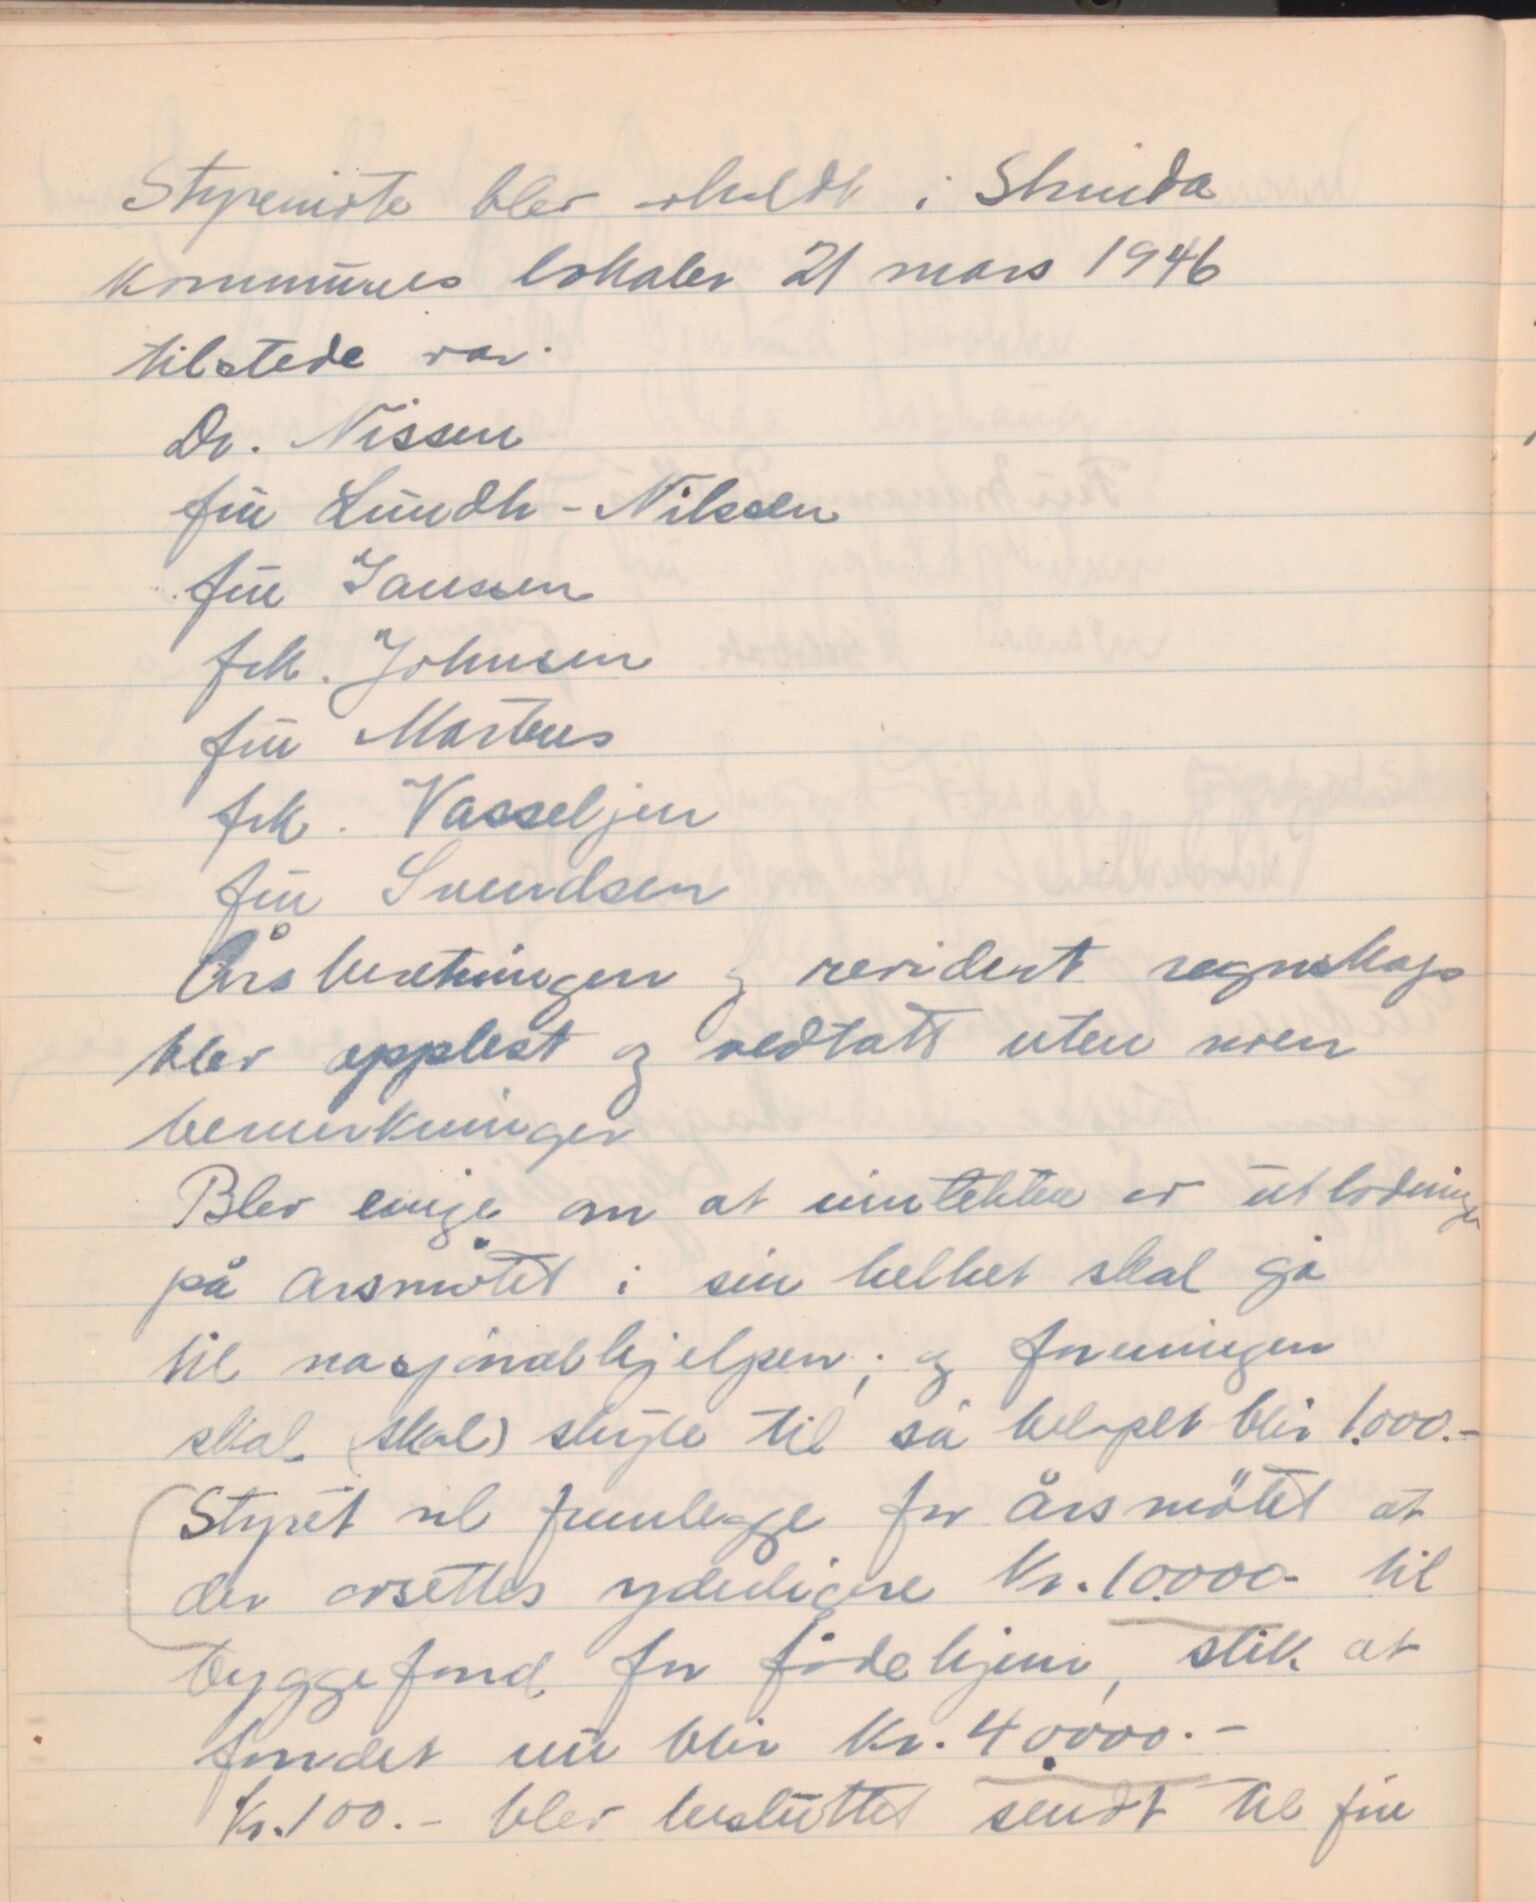 Styremøte blev avholdt i Strinda
kommunes lokaler 21 mars 1946
tilstede var.
Dr. Nissen
fru Lundh-Nilssen
fru Janssen
frk. Johnsen
fru Martens
frk. Vasseljen
fru Svendsen
Årsberetningen og revidert regnskaps
blev opplest og vedtatt uten noen
bemerkninger
Blev enige om at inntekten av utlodningen
på årsmøtet i sin helhet skal gå
til nasjonalhjelpen, og foreningen
skal (skal) skyte til så beløpet blir 1.000.-
Styret vil fremlegge for årsmøtet at
der avsettes yderligere Kr. 10.000- til
byggefond for fødehjem, slik at
fondet nu blir Kr. 40000.-
Kr. 100.- blev besluttet sendt til fru